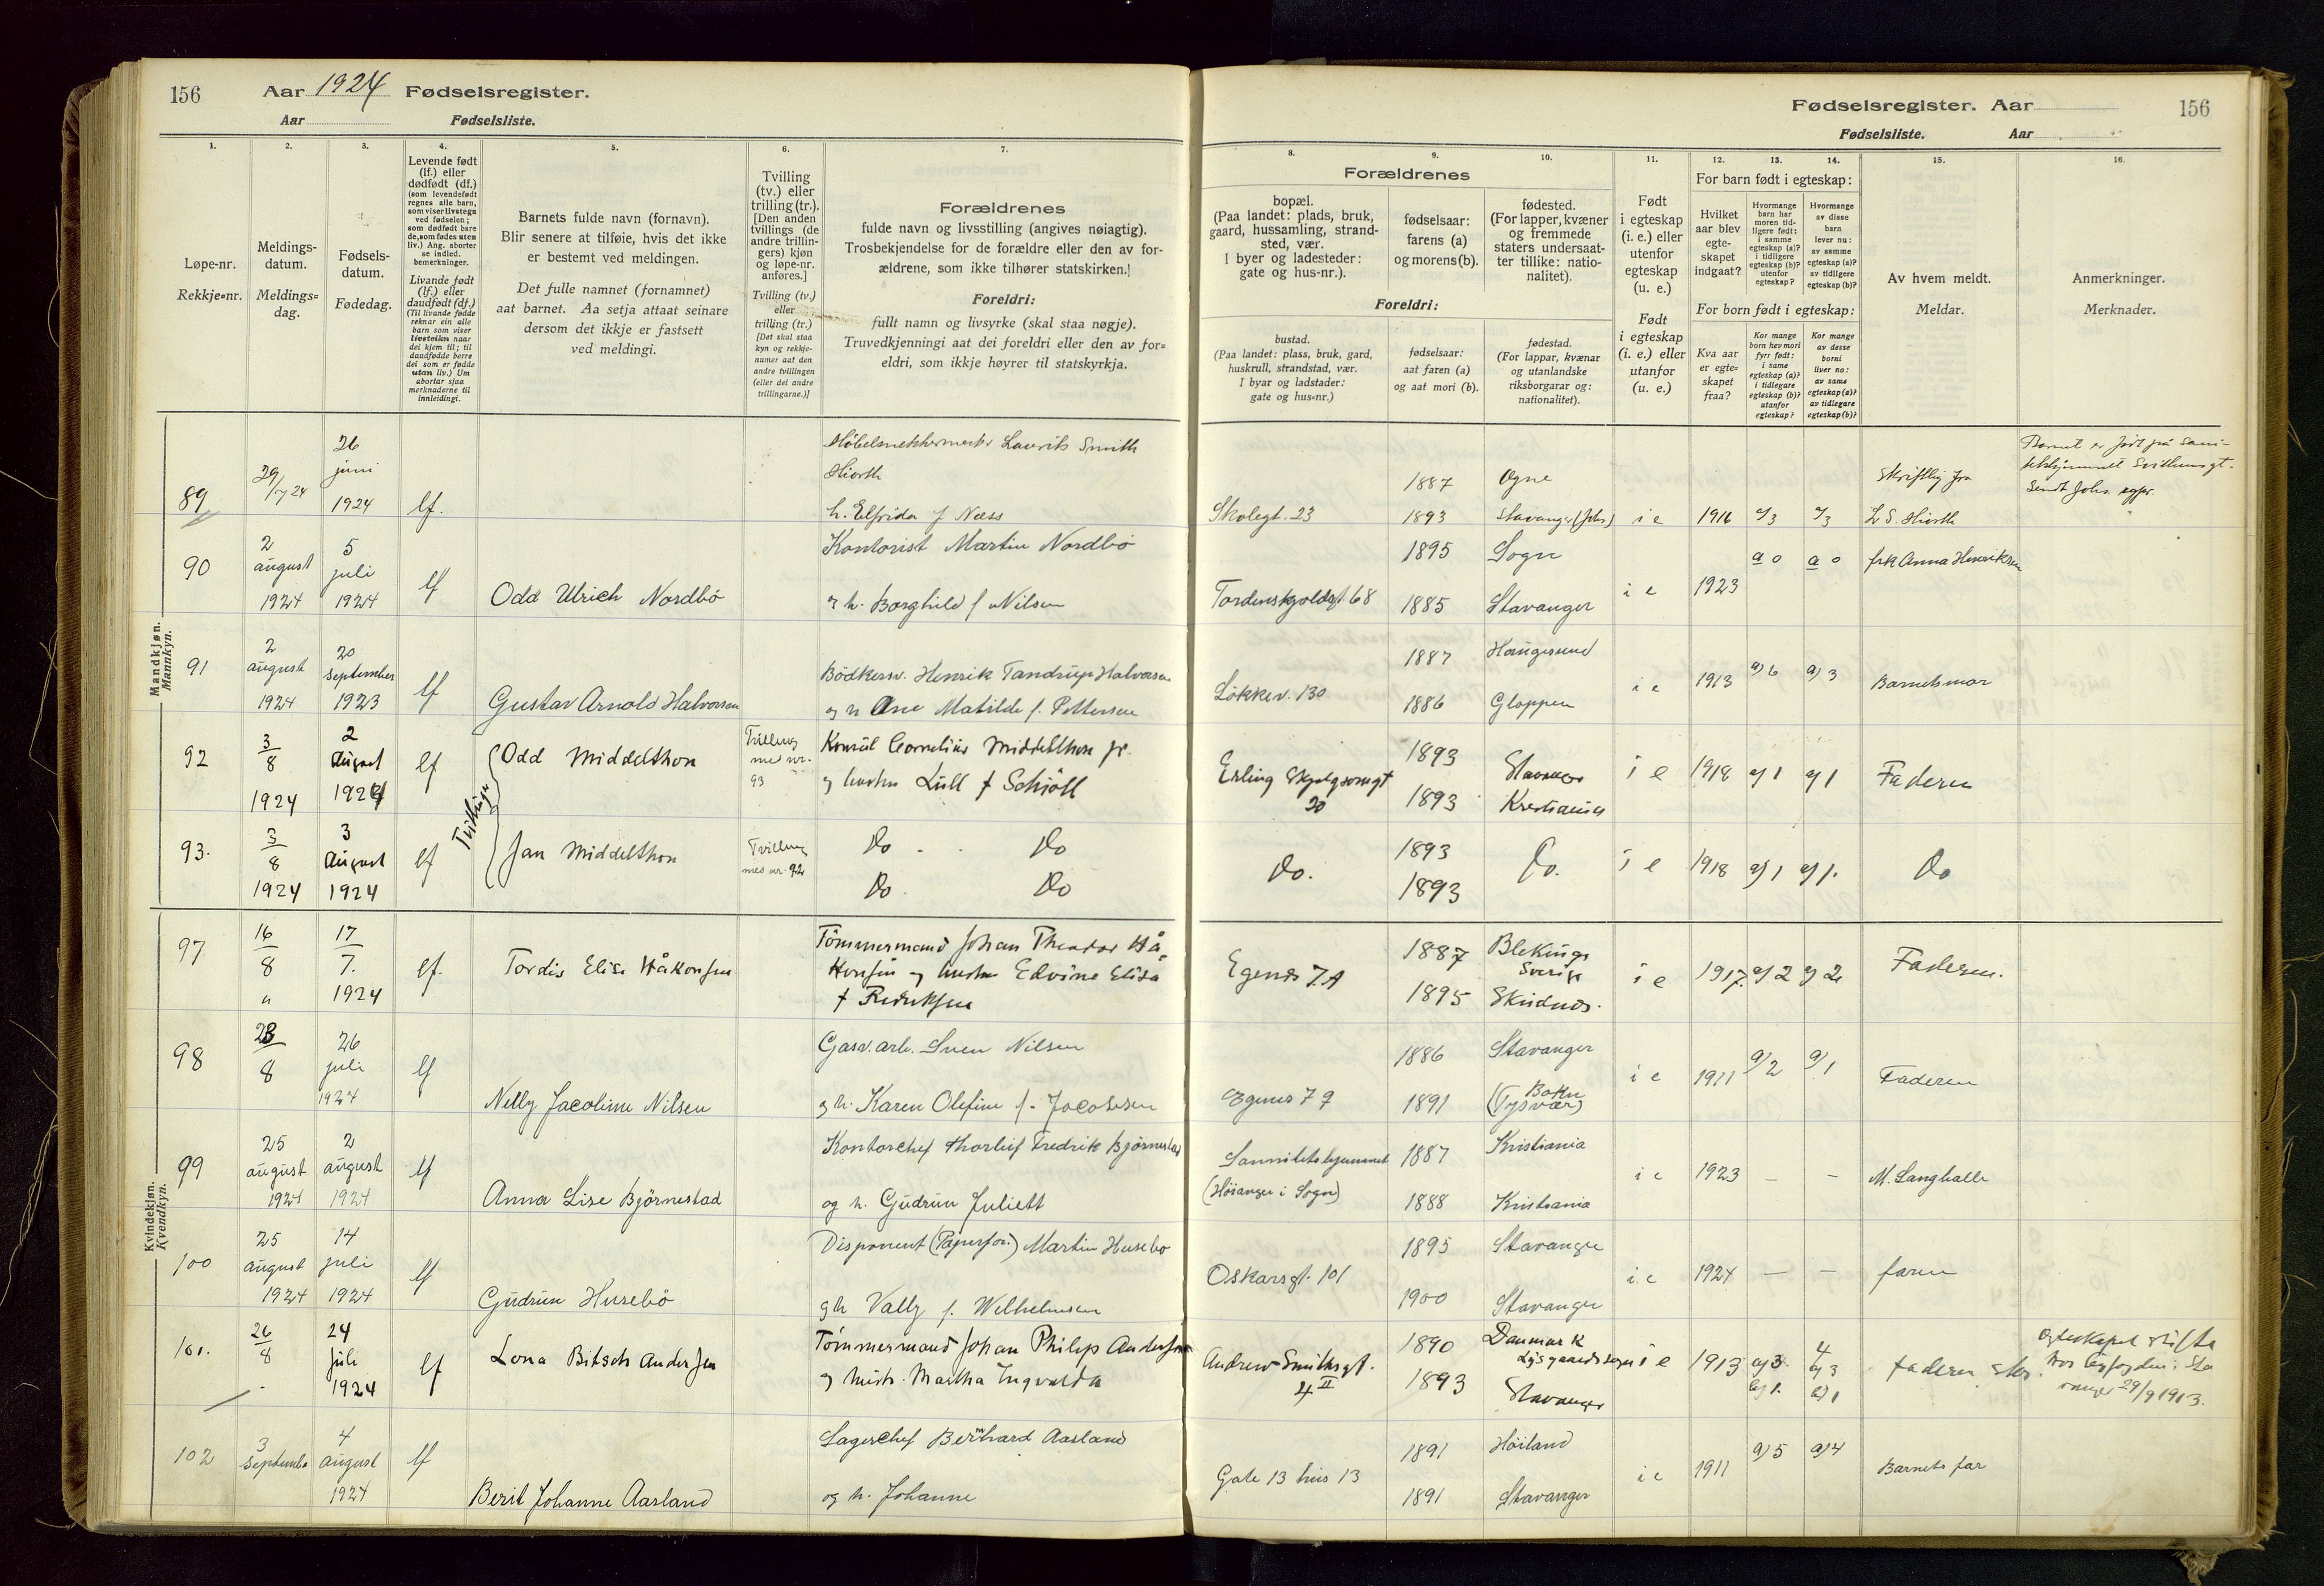 156 Aar 1924 Fødselsregister.
Aar Fødselsliste.
Fødselsregister. Aar 156
Fødselsliste. Aar
1. 2. 3. 4. 5. 6. 7.
Løpe-nr.
Rekkje=nr.
Meldings-
datum.
Meldings=
dag.
Fødsels-
datum.
Fødedag.
Levende født
(lf.) eller
dødfødt (df.)
(som levendefødt
regnes alle barn,
som viser livstegn
ved fødselen;
som dødfødt bare
de, som fødes uten
liv.) Ang. aborter
se indled.
bemerkninger.
Livande født
(lf.) eller
daudfødt (df.)
(Til livande fødde
reknar ein alle
barn som viser
livsteikn naar
dei kjem til; til
daudfødde berre
dei som er fødde
utan liv.) Um
abortar sjaa
merknaderne til
innleidingi.
Barnets fulde navn (fornavn).
Blir senere at tilføie, hvis det ikke
er bestemt ved meldingen.
Det fulle namnet (fornamnet)
aat barnet. Aa setja attaat seinare
dersom det ikkje er fastsett
ved meldingi.
Tvilling
(tv.) eller
trilling (tr.).
[Den anden
tvillings (de
andre trillin-
gers) kjøn
og løpe-nr.
anføres.]
Tvilling (tv.)
eller
trilling (tr.)
[Det skal staa
kyn og rekkje-
numer aat den
andre tvillingen
(eller dei andre
trillingarne.)]
Forældrenes
fulde navn og livsstilling (angives nøiagtig).
Trosbekjendelse for de forældre eller den av for-
ældrene, som ikke tilhører statskirken.]
Foreldri:
fullt namn og livsyrke (skal staa nøgje).
Truvedkjenningi aat dei foreldri eller den av for=
eldri, som ikkje høyrer til statskyrkja.
8. 9. 10. 11. 12. 13. 14. 15. 16.
Forældrenes
bopæl.
(Paa landet: plads, bruk,
gaard, hussamling, strand-
sted, vær.
I byer og ladesteder:
gate og hus-nr.).
fødselsaar:
farens (a)
og morens (b).
fødested.
(For lapper, kvæner
og fremmede
staters undersaat-
ter tillike: natio-
nalitet).
Foreldri:
bustad.
(Paa landet: plass, bruk, gard,
huskrull, strandstad, vær.
I byar og ladstader:
gate og hus=nr.)
fødselsaar:
aat faren (a)
og aat mori (b).
fødestad.
(For lappar, kvænar
og utanlandske
riksborgarar og:
nationalitet).
Født
i egteskap
(i. e.) eller
utenfor
egteskap
(u. e.)
Født
i egteskap
(i. e.) eller
utanfor
(u. e.)
For barn født i egteskap:
Hvilket
aar blev
egte-
skapet
indgaat?
Hvormange
barn har
moren tid-
ligere født:
i samme
egteskap (a)?
i tidligere
egteskap (b)?
utenfor
egteskap?
Hvormange
av disse
barn
lever nu:
av samme
egteskap (a)?
av tidligere
egteskap (b)?
For born født i egteskap:
Kva aar
er egte=
skapet
fraa?
Kor mange
born hev mori
fyrr født:
i same
egteskap (a)?
i tidlegare
egteskap (b)?
utanfor
egteskap?
Kor mange
av desse
borni
liver no:
av same
egteskap (a)?
av tidlegare
egteskap (b)?
Av hvem meldt.
Meldar.
Anmerkninger.
Merknader.
Mandkjøn.
Mannkyn.
89 29/7 24 26 juni 1924 lf.
Laurits Smith
Hiorth
h. Elfrida f Næss
Skolegt. 23 1887 Ogne
1893 Stavanger (Johs) i e 1916 a/3 a/3
Skriftlig fra
L S. Hiorth
Barnet er født på Sani-
Svithunsgt.
Sendt Johs
90 2 august 1924 5 juli 1924 lf Odd Ulrich Nordbö
Kontorist Martin Nordbö
og h. Borghild f Nilsen
Tordenskjoldsgt 68 1895 Sogn
1885 Stavanger i e 1923 a 0 a 0 frk Anna Henriksen
91 2 august 1924 20 september 1923 lf Gustav Arnold Halvorsen
Bödkersv. Henrik Tandrup Halvorsen
og h Ane Matilde f. Pettersen
Lökkev. 130 1887 Haugesund
1886 Gloppen i e 1913 a) 6 a) 3 Barnets mor
92 3/8 1924 2 August 1924 lf Tvillinger Odd Middelthon
Tvilling med nr. 93
Konsul Cornelius Middelthon jr.
og hustru Lull f Schiöll
Erling Skjalgsonsgt 20 1893 Stavanger
1893 Kristiania i e 1918 a) 1 a) 1 Faderen
93. 3/8 1924 3 August 1924 lf Jan Middelthon
Tvilling med nr. 92
Do Do
Do Do
Do. 1893 1893 Do. i e 1918 a) 1 a) 1. Do
Kvindekjøn.
Kvendkyn.
97 16/8 " 17/7. 1924 lf. Tordis Elise Håkonsen
Tömmermand Johan Theodor Hå-
konsen og hustru Edvine Elise
f Rediksen
Egenes 7A 1887 Blekinge Sverige
1895 Skudnes. i e 1917. a) 2 a) 2 Faderen.
98 28/8 26 juli 1924 lf Nelly Jacobine Nilsen
Gasv. arb. Sven Nilsen
og h. Karen Olefine f. Jacobsen
Egenes 79 1886 Stavanger
1891 Bokn (Tysvær) i e 1911 a/2 a/1 Faderen
99 25 august 1924 2 august 1924 lf Anna Lise Björnestad
Kontorchef Thorleif Fredrik Björnestad
og h. Gudrun Juliett
Sannitetshjemmet
(Höianger i Sogn)
1887 Kristiania
1888 Kristiania i e 1923 – – M. Langhelle
100 25 august 1924 14 juli 1924 lf Gudrun Husebö
Disponent (Papirfor.) Martin Husebö
og h Vally f. Wilhelmsen
Oskarsgt. 101 1895 Stavanger
1900 Stavanger i e 1924 – – faren
101. 26/8 24 juli 1924 lf Lona Bitsch Andersen
Tömmermand Johan Philip Andersen
og hustr. Martha Ingvalda
Andrew Smithsgt. 4 II 1890 Danmark
1893 Stavanger i e 1913 a) 3. b) 1. 4 a) 3 b) 1 Faderen skr.
Egteskapet stifta
hos byfogden i Sta
vanger 29/9 1913.
102 3 September 4 august 1924 lf Berit Johanne Aasland
Lagerchef Bernhard Aasland
og h. Johanne
Gate 13 hus 13 1891 Höiland
1891 Stavanger i e 1911 a) 5 a) 4 Barnets far